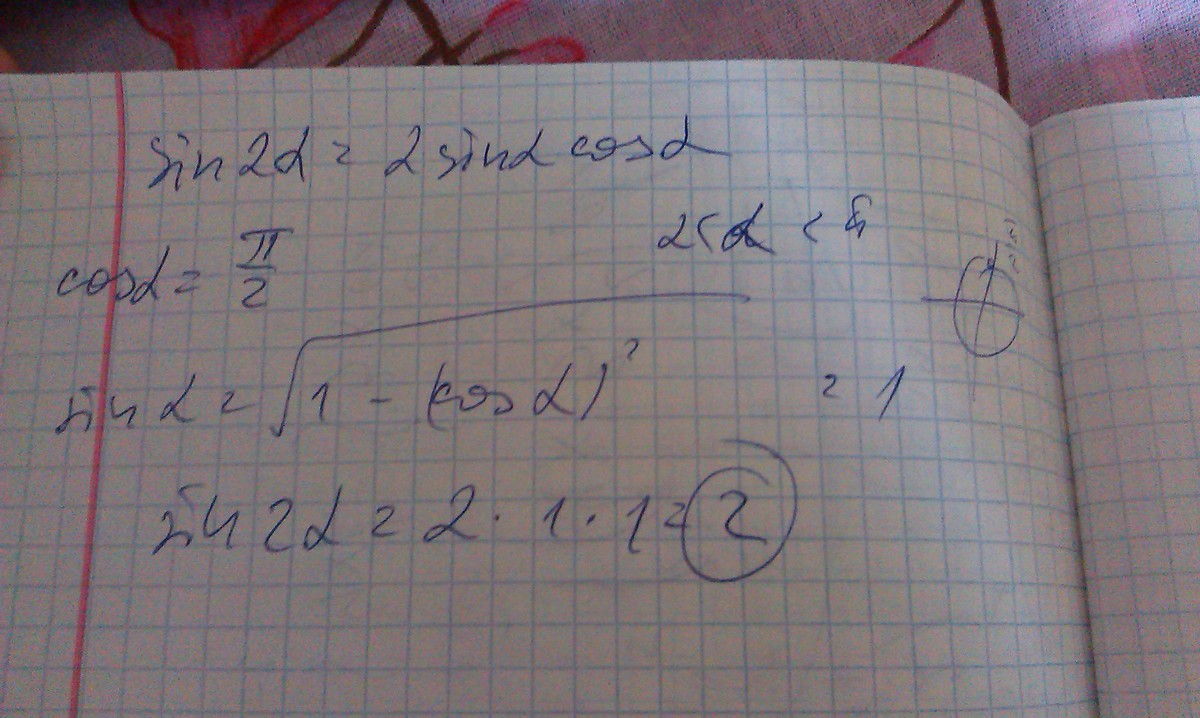 sin 2α = 2 sinα cosα
cosα = π/2
sin α = √1 - (cos α)² = 1
sin 2α = 2 · 1 · 1 = 2